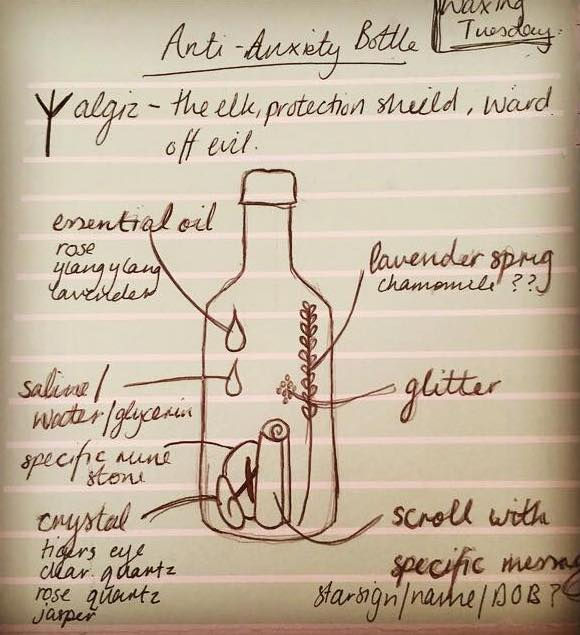 Waxing
Tuesday.
Anti-Anxiety Bottle
algiz - the elk, protection shield, ward
off evil.
essential oil
rose
ylang ylang
lavender
lavender sprig
chamomile ??
saline/
water/glycerin
glitter
specific rune
stone
crystal
tigers eye
clear quartz
rose quartz
jasper
scroll with
specific messag
starsign/name/DOB?